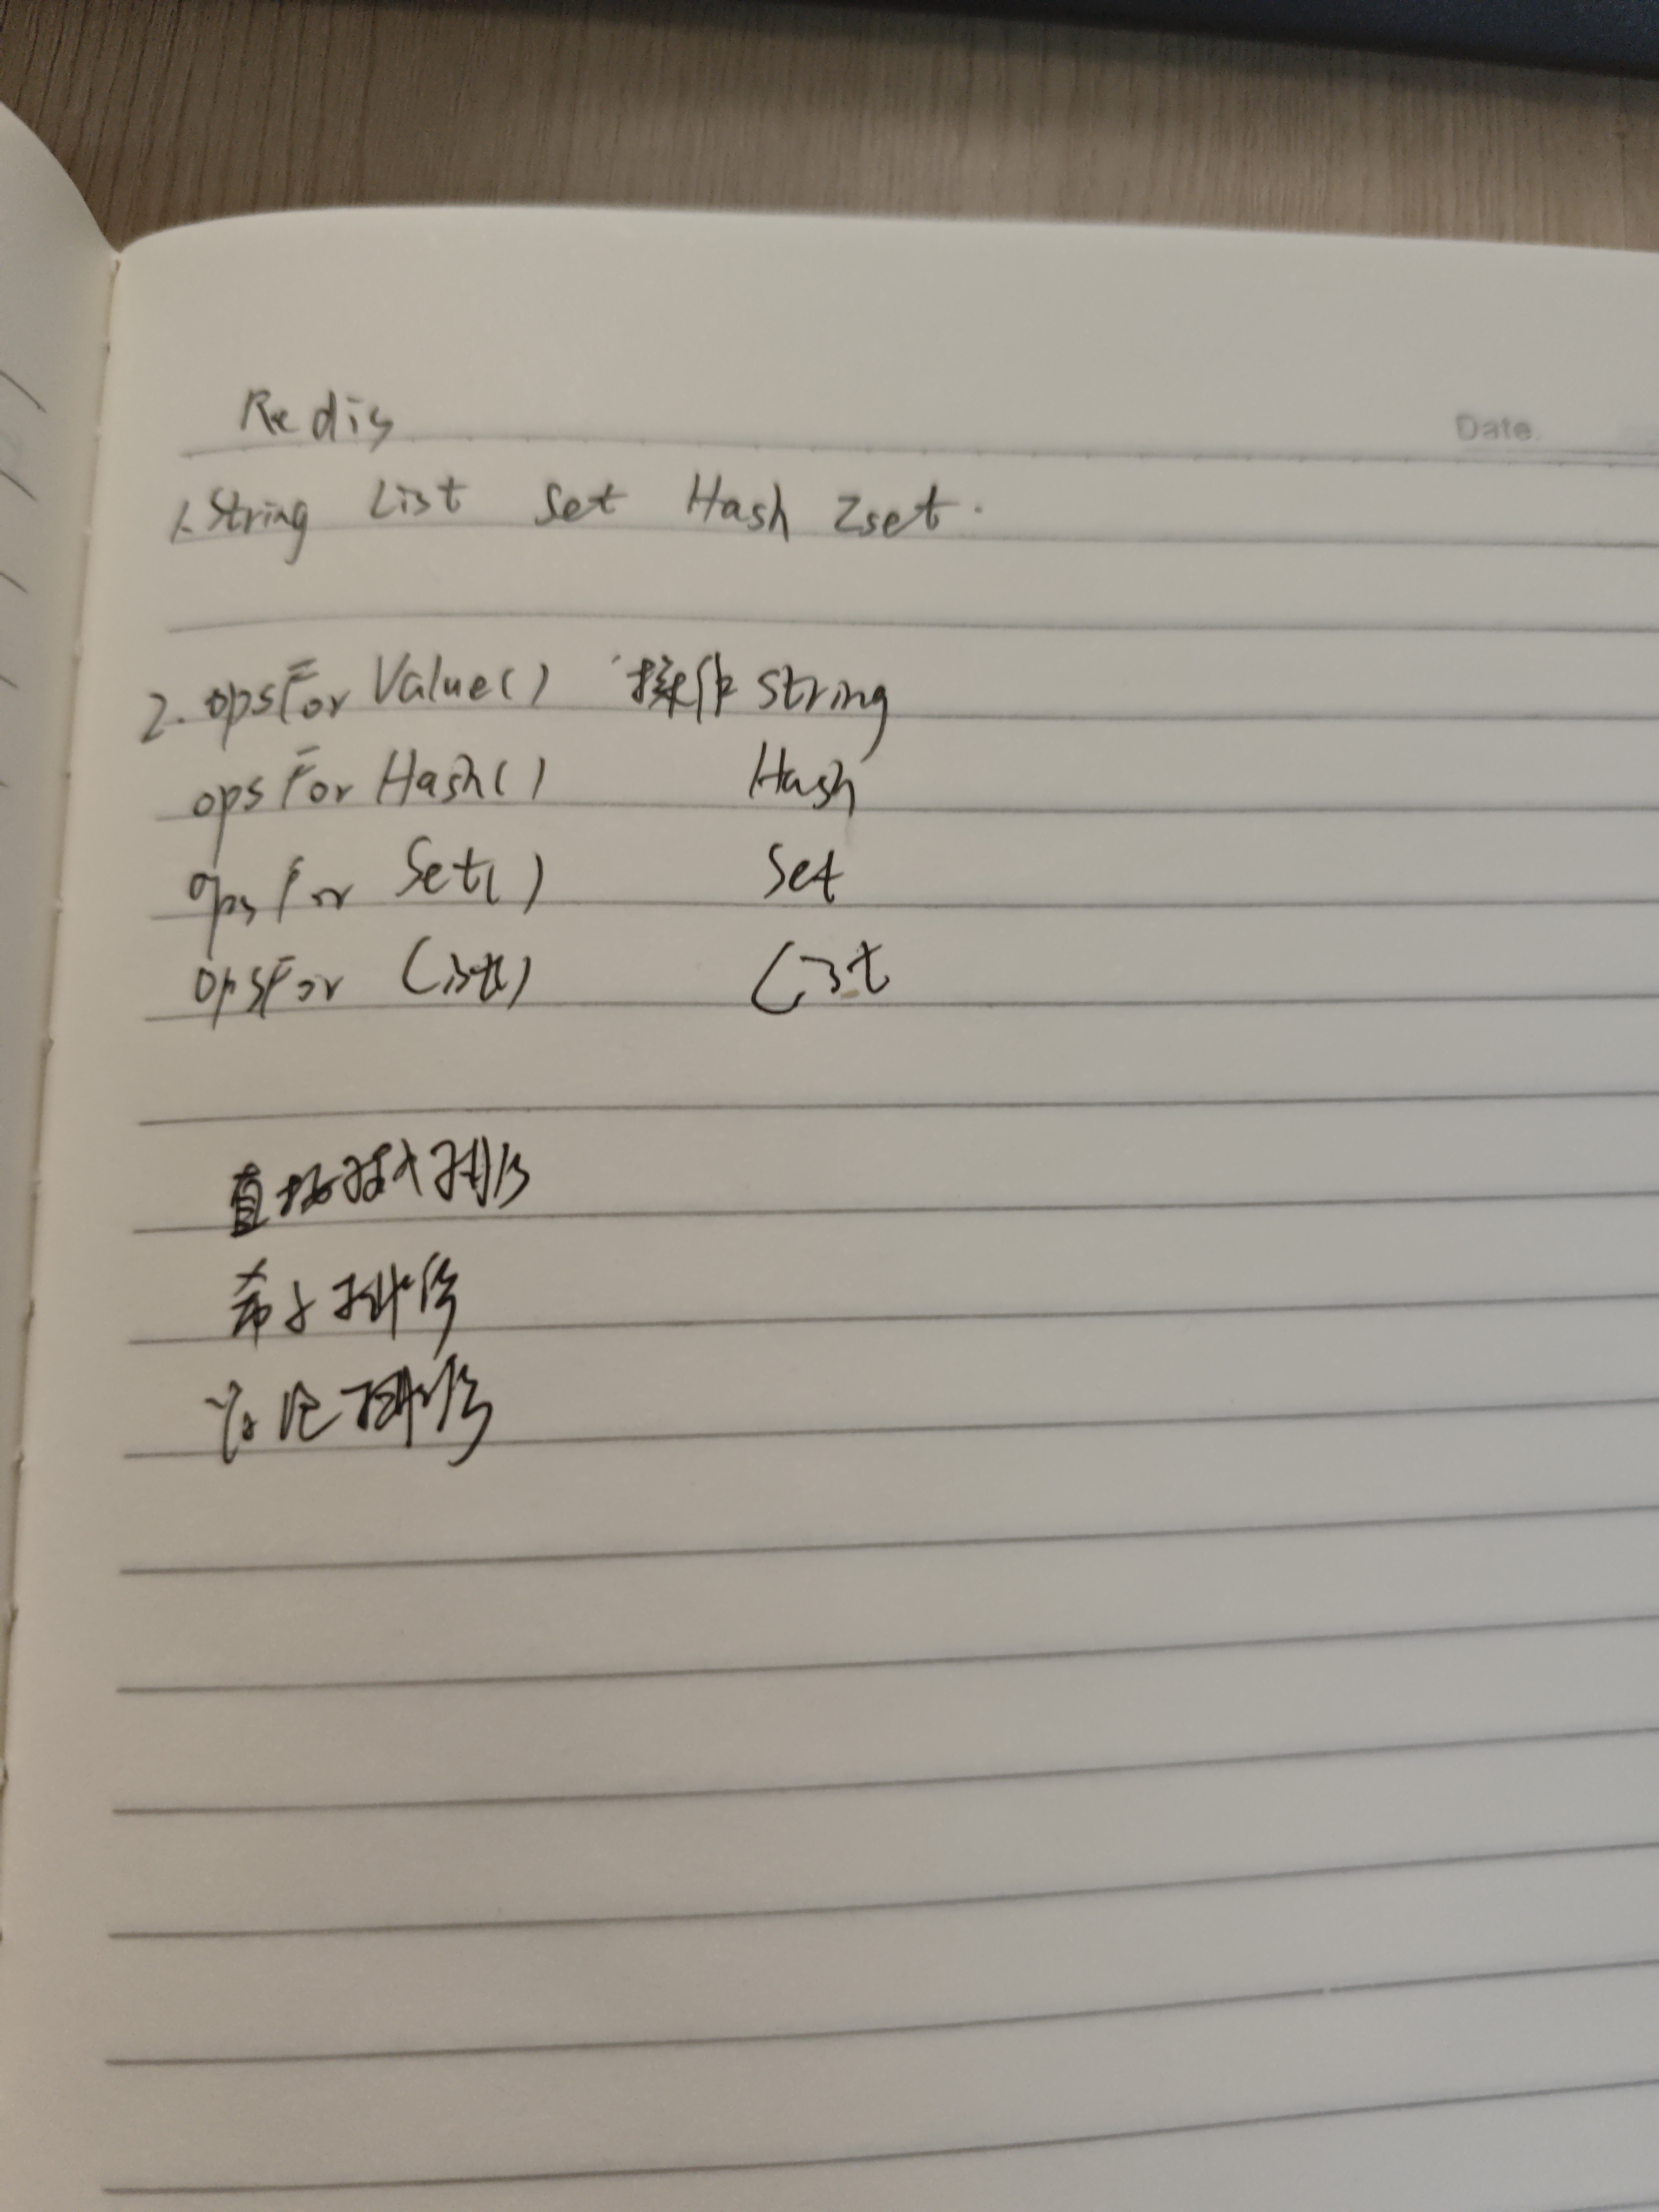 Redis
Date.
1. String List Set Hash Zset.
2. opsFor Value() 操作 String
opsFor Hash() Hash
opsFor Set() Set
opsFor List() List
直接插入排序
希尔排序
冒泡排序